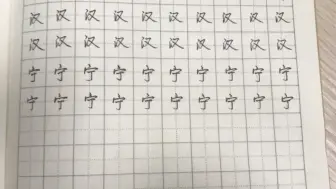 汉 汉 汉 汉 汉 汉 汉 汉 汉 汉
汉 汉 汉 汉 汉 汉 汉 汉 汉 汉
宁 宁 宁 宁 宁 宁 宁 宁 宁 宁
宁 宁 宁 宁 宁 宁 宁 宁 宁 宁